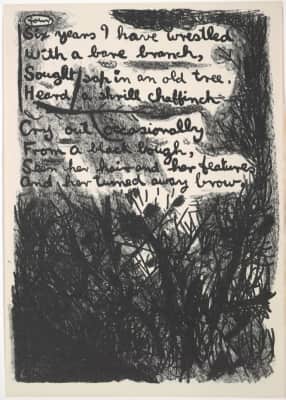 Six years I have wrestled
With a bare branch,
Sought sap in an old tree.
Heard a shrill chaffinch
Cry out occasionally
From a black bough,
Seen her hair and her features
And her turned away brow.